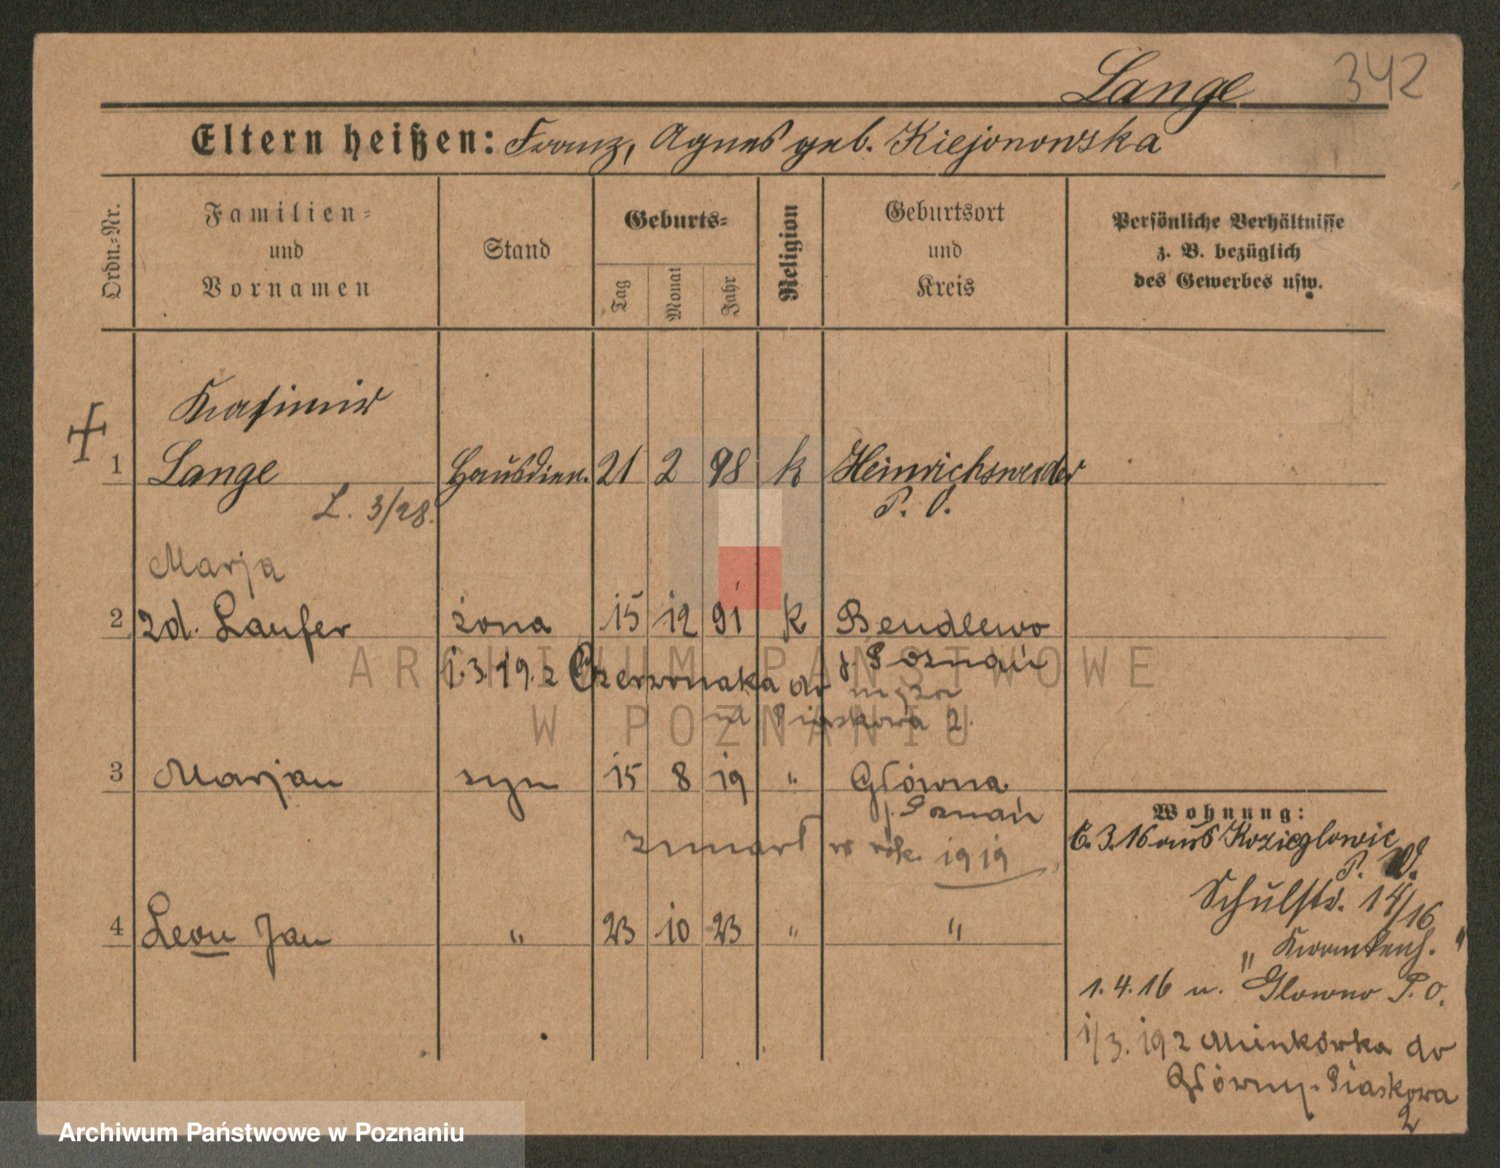 342
Lange
Eltern heißen: Franz, Agnes geb. Kiejonowska
Ordn.-Nr.
Familien- und Vornamen
Stand
Geburts-
Tag
Monat
Jahr
Religion
Geburtsort und Kreis
Persönliche Verhältnisse z. B. bezüglich des Gewerbes usw.
Kasimir
1 Lange Hausdien. 21 2 98 k Heinrichsweder
L. 3/28. P. O.
Marja
2 zd. Laufer żona 15 12 91 k Bendlewo
p. Poznań
1.3.19 z Czerwonaka do męża
ul Piaskowa 2.
3 Marjan syn 15 8 19 " Główna
p. Poznań
zmarł w rok. 1919
4 Leon Jan " 23 10 23 " "
Wohnung:
6.3.16 aus Kozieglowic
P. O.
Schulstr. 14/16
" Krankenh. "
1.4.16 n. Glowno P. O.
1/3. 19 z Miękówka do
Główny. Piaskowa
2
ARCHIWUM PAŃSTWOWE
W POZNANIU
Archiwum Państwowe w Poznaniu